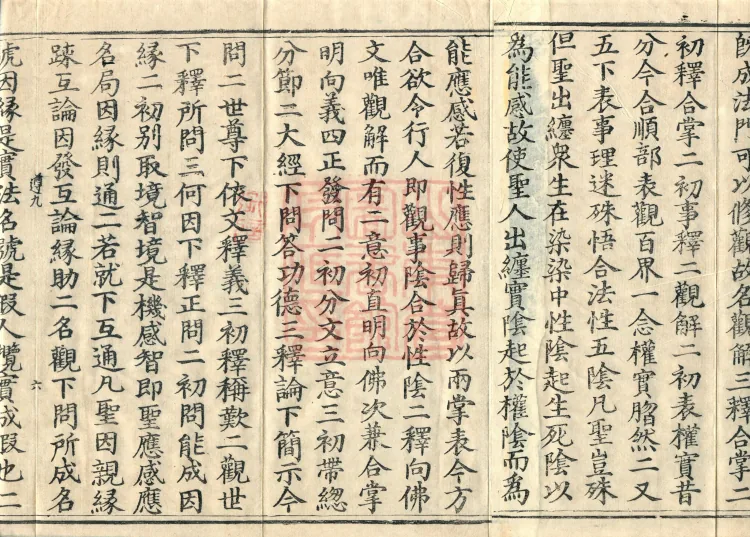 既成法門可以修觀故名觀解三釋合掌二
初釋合掌二初事釋二觀解二初表權實昔
分今合順部表觀百界一念權實脗然二又
五下表事理迷殊悟合法性五陰凡聖豈殊
但聖出纏衆生在染染中性陰起生死陰以
為能感故使聖人出纏實陰起於權陰而為
能應感若復性應則歸眞故以兩掌表今方
合欲令行人即觀事陰合於性陰二釋向佛
文唯觀解而有二意初直明向佛次兼合掌
明向義四正發問二初分文立意三初帶緫
分節二大經下問答功德三釋論下簡示今
問二世尊下依文釋義三初釋稱歎二觀世
下釋所問三何因下釋正問二初問能成因
緣二初別取境智境是機感智即聖應感應
名局因緣則通二若就下互通凡聖因親緣
踈互論因發互論緣助二名觀下問所成名
遵九
六
號因緣是實法名號是假人攬實成假也二